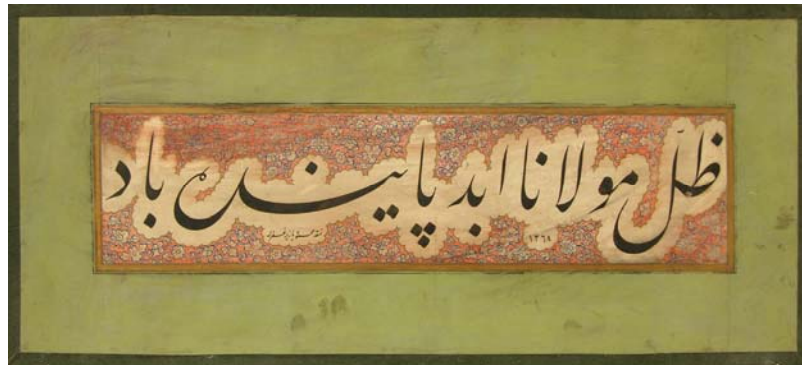 ظلّ مولانا ابد پاینده باد